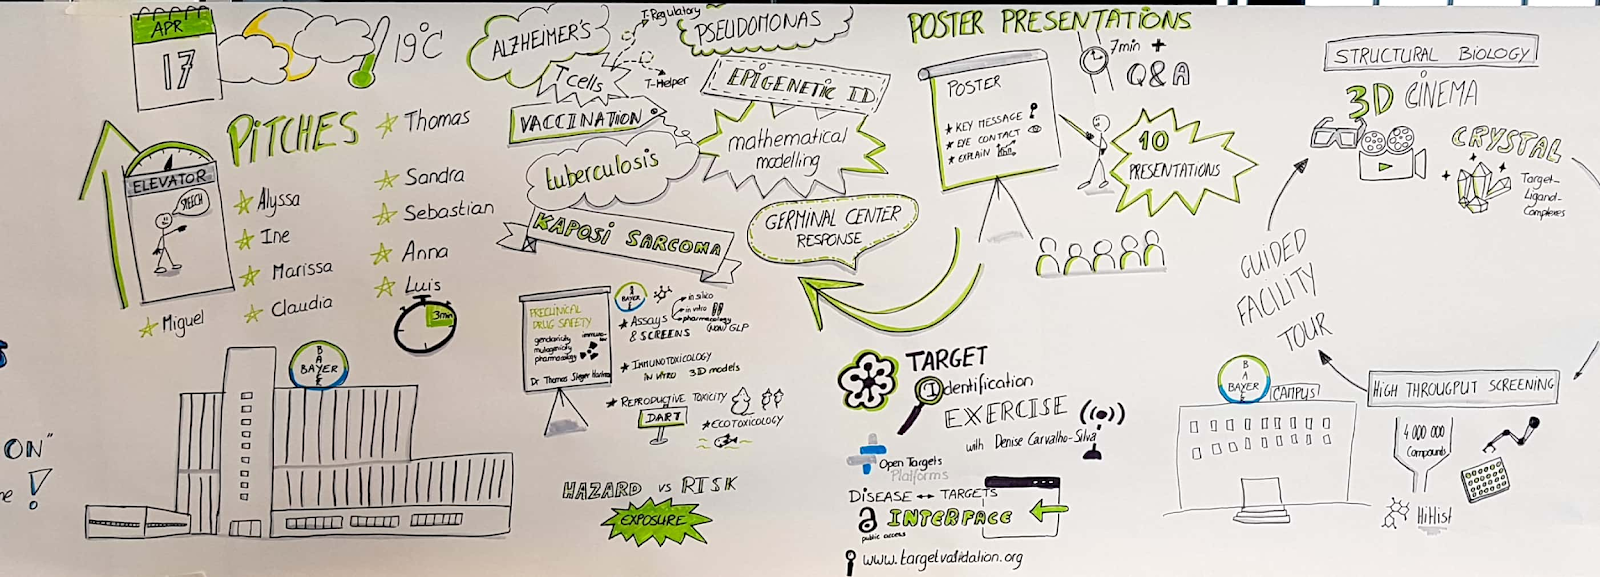 APR
17
19°C
PITCHES
ELEVATOR
SPEECH
Alyssa
Ine
Marissa
Claudia
Miguel
Thomas
Sandra
Sebastian
Anna
Luis
3min
BAYER
BAYER
ON"
!
ALZHEIMER'S
T-Regulatory
T cells
T-Helper
PSEUDOMONAS
EPIGENETIC ID
VACCINATION
tuberculosis
mathematical
modelling
KAPOSI SARCOMA
GERMINAL CENTER
RESPONSE
PRECLINICAL
DRUG SAFETY
genotoxicity
mutagenicity
pharmacology
Dr Thomas Steger
BAYER
BAYER
in silico
in vitro
pharmacology
(non) GLP
★ ASSAYS
& SCREENS
★ IMMUNOTOXICOLOGY
IN VITRO 3D models
★ REPRODUCTIVE TOXICITY
DART
★ ECOTOXICOLOGY
HAZARD vs RISK
EXPOSURE
POSTER PRESENTATIONS
7min +
Q&A
POSTER
★ KEY MESSAGE
★ EYE CONTACT
★ EXPLAIN
10
PRESENTATIONS
TARGET
Identification
EXERCISE
with Denise Carvalho-Silva
Open Targets
Platforms
DISEASE ↔ TARGETS
INTERFACE
public access
www.targetvalidation.org
STRUCTURAL BIOLOGY
3D CINEMA
CRYSTAL
Target-
Ligand-
Complexes
GUIDED
FACILITY
TOUR
HIGH THROUGPUT SCREENING
4 000 000
Compounds
HitList
BAYER
BAYER
CAMPUS